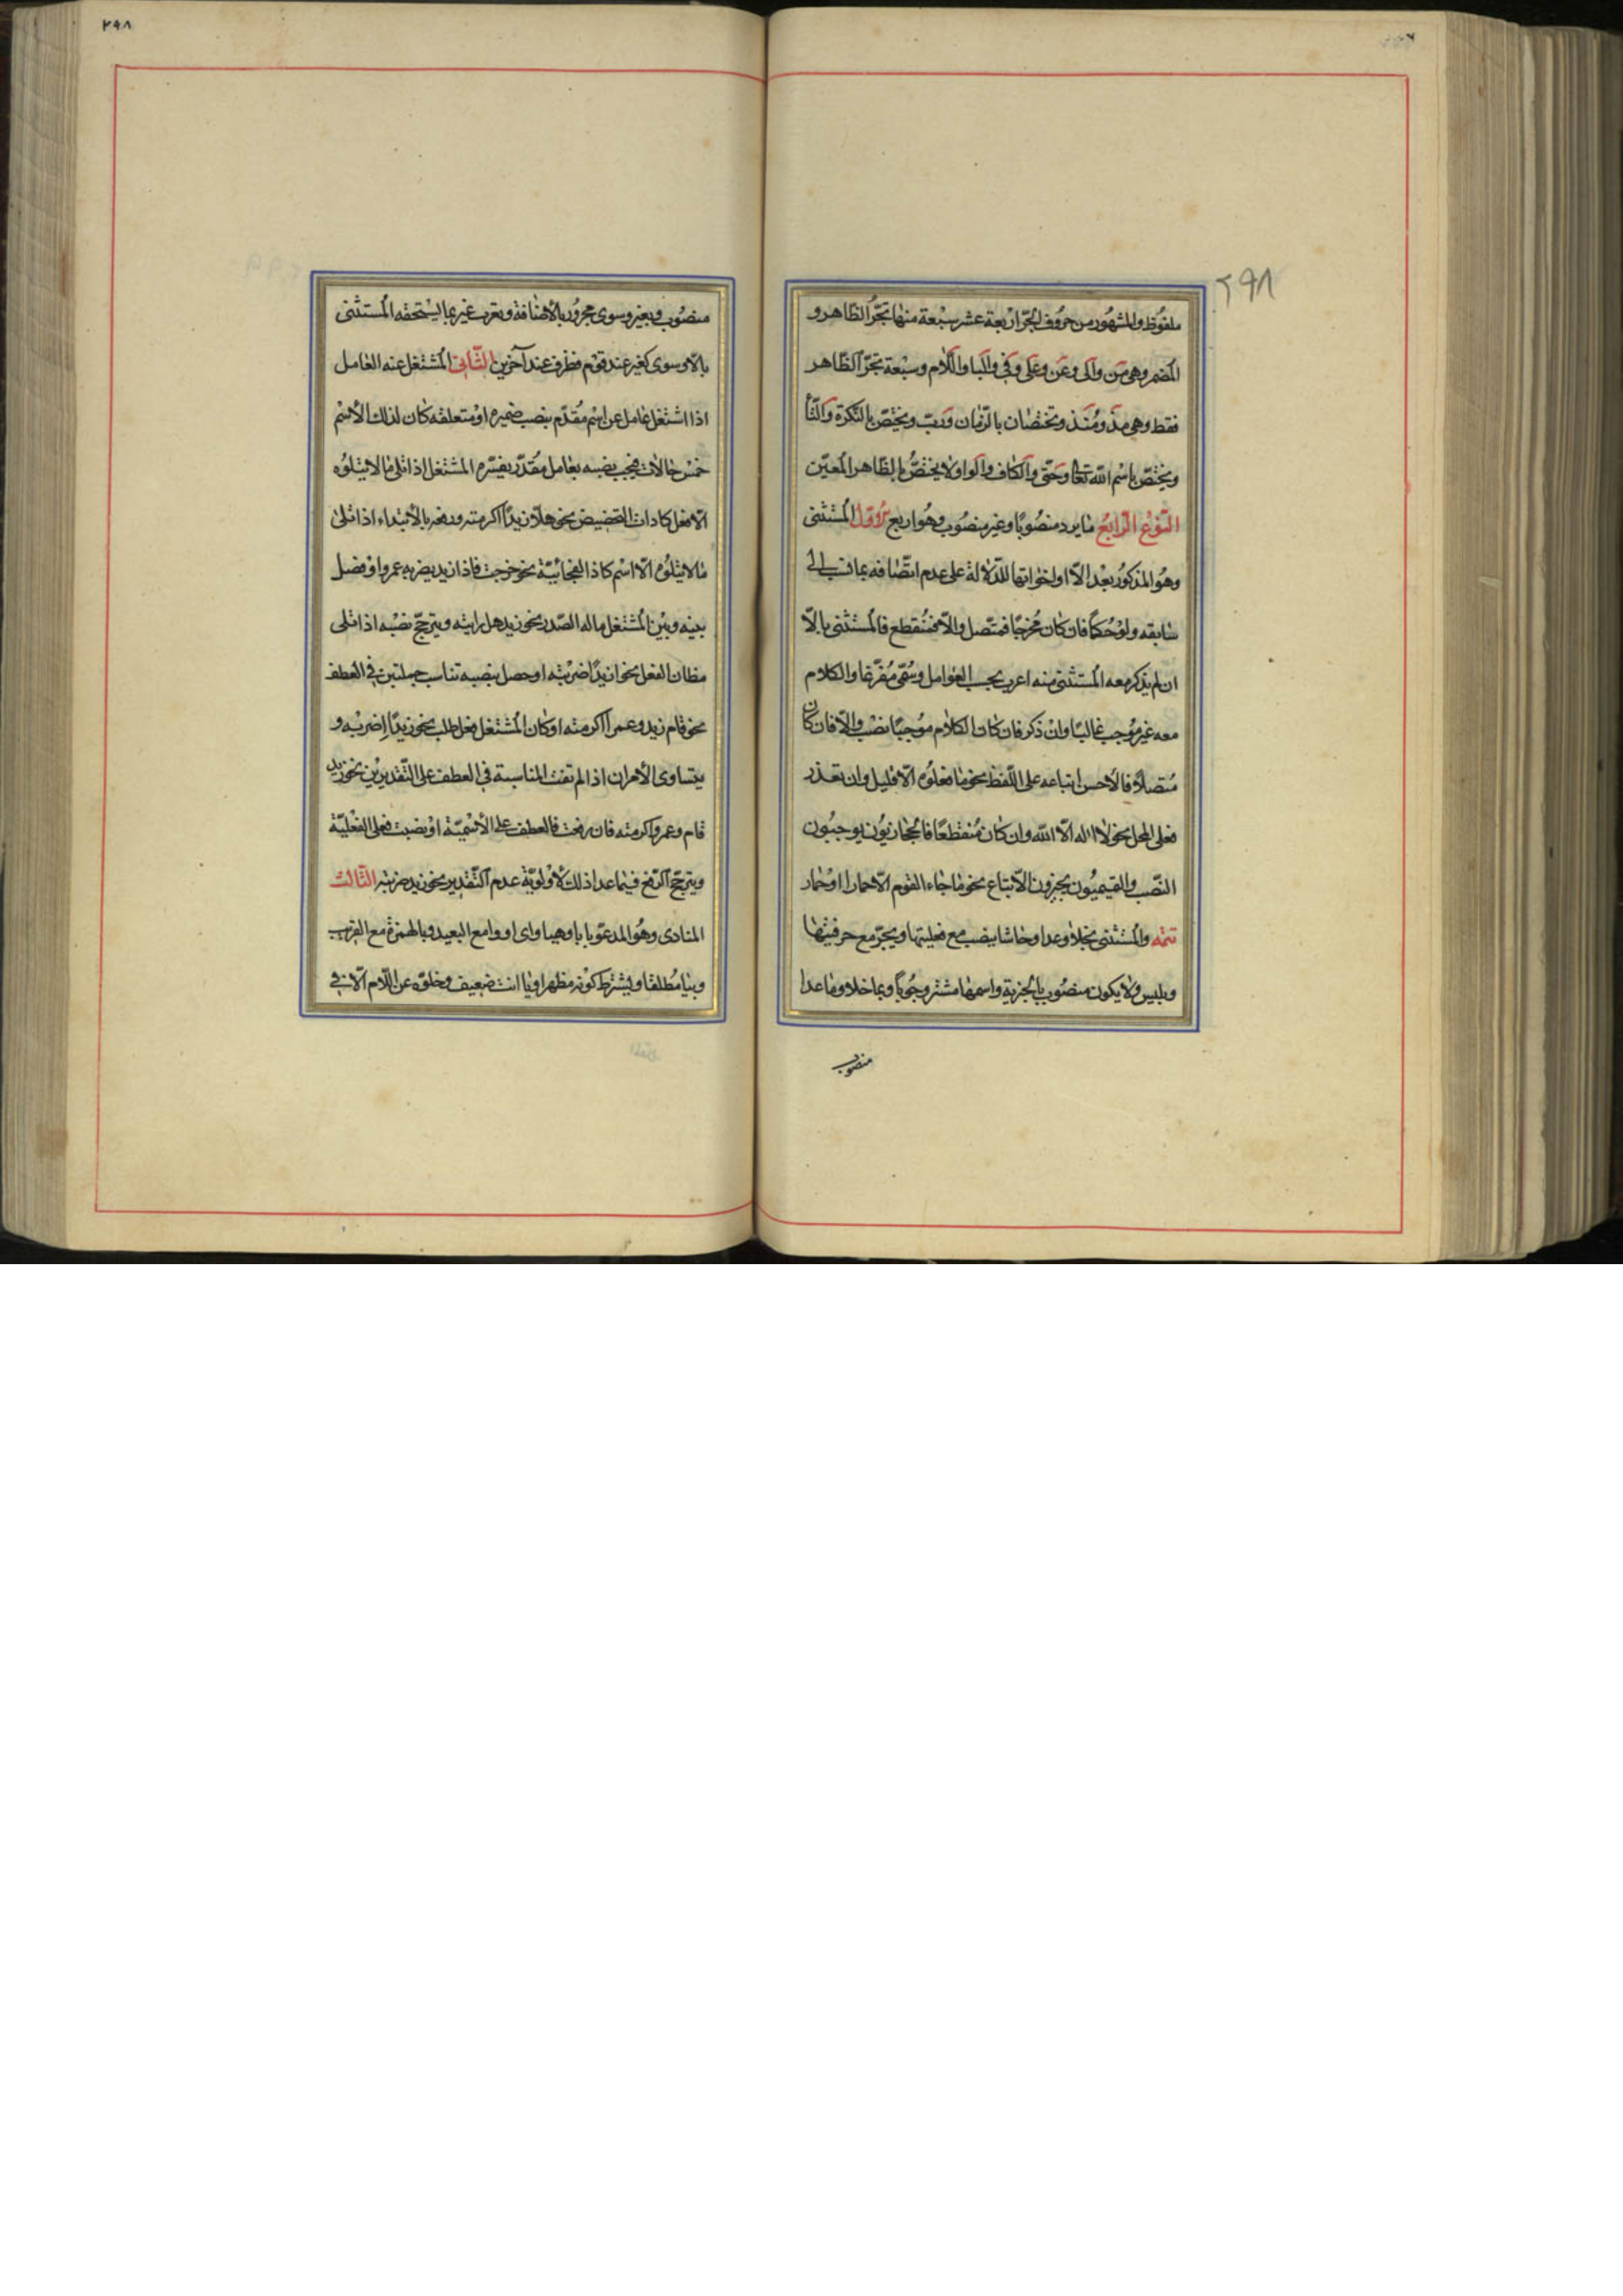 ٢٩٨
ملفوظ والمشهور من حروف الجر اربعة عشر سبعة منها تجر الظاهر و
المضمر وهى من والى وعن وعلى وفى والبا واللام وسبعة تجر الظاهر
فقط وهى مذ ومنذ وتختصان بالزمان ورب ويختص بالنكرة والتا
ويختص باسم الله تعالى وحتى والكاف والواو ولا يختص بالظاهر المعين
النوع الرابع ما يرد منصوبا وغير منصوب وهو اربع الاول المستثنى
وهو المذكور بعد الا او اخواتها للدلالة على عدم اتصافه بما نسب الى
سابقه ولو حكما فان كان مخرجا فمتصل والا فمنقطع فالمستثنى بالا
ان لم يذكر معه المستثنى منه اعرب بحسب العوامل وسمى مفرغا والكلام
معه غير موجب غالبا وان ذكر فان كان الكلام موجبا نصب والا فان كان
متصلا فالاحسن اتباعه على اللفظ نحو ما فعلوه الا قليل وان تعذر
فعلى المحل نحو لا اله الا الله وان كان منقطعا فالحجازيون يوجبون
النصب والتميميون يجيزون الاتباع نحو ما جاء القوم الا حمارا او حمار
تتمه والمستثنى بخلا وعدا وحاشا ينصب مع فعليتها ويجر مع حرفيتها
وبليس ولا يكون منصوب بالخبرية واسمها مستتر وجوبا وبما خلا وما عدا
منصوب
٢٩٨
منصوب وبغير وسوى مجرور بالاضافة ويعرب غير بما يستحقه المستثنى
بالا وسوى كغير عند قوم وظرف عند آخرين الثانى المشتغل عنه العامل
اذا اشتغل عامل عن اسم مقدم بنصب ضميره او متعلقه كان لذلك الاسم
خمس حالات فيجب نصبه بعامل مقدر يفسره المشتغل اذا تلى ما لا يتلوه
الا فعل كادات التحضيض نحو هلا زيدا اكرمته ورفعه بالابتداء اذا تلى
ما لا يتلوه الا اسم كاذا الفجائية نحو خرجت فاذا زيد يضربه عمرو او فصل
بينه وبين المشتغل ماله الصدر نحو زيد هل رايته ويترجح نصبه اذا تلى
مظان الفعل نحو ازيدا ضربته او حصل بنصبه تناسب جملتين فى العطف
نحو قام زيد وعمرا اكرمته او كان المشتغل فعل طلب نحو زيدا اضربه و
يتساوى الامران اذا لم تفت المناسبة فى العطف على التقديرين نحو زيد
قام وعمرو اكرمته فان رفعت فالعطف على الاسمية او نصبت فعلى الفعلية
ويترجح الرفع فيما عدا ذلك لاولوية عدم التقدير نحو زيد ضربته الثالث
المنادى وهو المدعو بايا وهيا واى او وا مع البعيد وبالهمزة مع القريب
وبيا مطلقا ويشترط كونه مظهرا ويا انت ضعيف وخلوه عن اللام الا فى